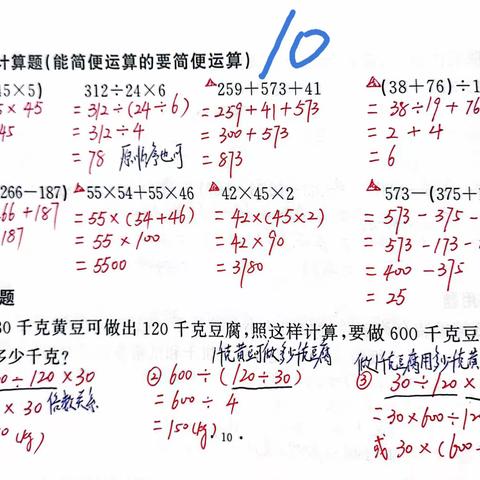 计算题(能简便运算的要简便运算) 10
45×5) 312÷24×6 259+573+41 (38+76)÷1
5×45 =312÷(24÷6) =259+41+573 =38÷19+76
45 =312÷4 =300+573 =2+4
=78 原顺序也可 =873 =6
266-187) 55×54+55×46 42×45×2 573-(375+1
66+187 =55×(54+46) =42×(45×2) =573-375-
187 =55×100 =42×90 =573-173-
=5500 =3780 =400-375
=25
题
30千克黄豆可做出120千克豆腐,照这样计算,要做600千克豆
多少千克? 1千克黄豆可做多少千克豆腐 做1千克豆腐用多少千克黄
0÷120×30 ②600÷(120÷30) ③30÷120×
×30 倍数关系 =600÷4 =30×600÷12
0(kg) =150(kg) 或30×(600÷
·10·